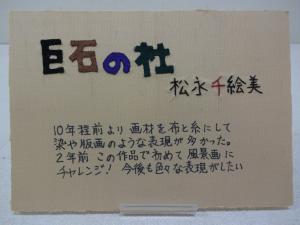 巨石の杜
松永千絵美
10年程前より 画材を布と糸にして
染や版画のような表現が多かった。
2年前 この作品で初めて風景画に
チャレンジ! 今後も色々な表現がしたい